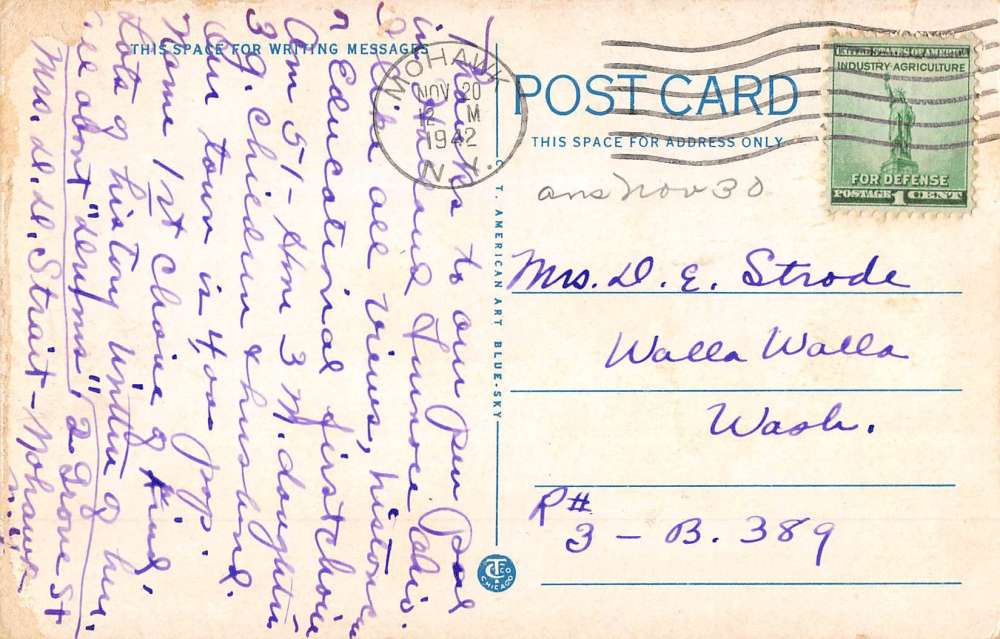 THIS SPACE FOR WRITING MESSAGES
POST CARD
THIS SPACE FOR ADDRESS ONLY
MOHAWK
NOV 20
12 M
1942
N.Y.
UNITED STATES OF AMERICA
INDUSTRY-AGRICULTURE
FOR DEFENSE
POSTAGE 1 CENT
ans Nov 30
Mrs. D. E. Strode
Walla Walla
Wash.
R#
3 - B. 389
Thanks to our Pen Pal
and
I like all views, historical
Educational first choice
Am 51 - 3 daughter
3 g. children & husband.
Our town is 4,000 pop.
Name 1st choice of kind,
Lots of history written of here,
about 2 Grove St
Mrs. Strait - Mohawk
N.Y.
C. T. AMERICAN ART BLUE-SKY
CT CO
CHICAGO